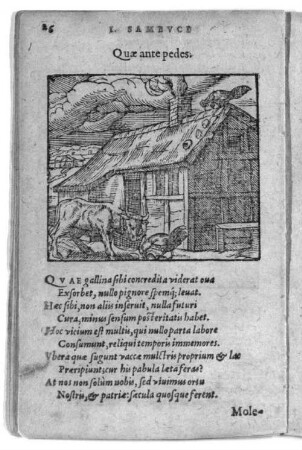 26 I. SAMBVCI
Quæ ante pedes.
QVAE gallina sibi concredita viderat oua
Exsorbet, nullo pignore spemq; leuat.
Hæc sibi, non aliis inseruit, nulla futuri
Cura, minus sensum posteritatis habet.
Hoc vicium est multis, qui nullo parta labore
Consumunt, reliqui temporis immemores.
Vbera quæ sugunt vaccæ mulctris proprium & lac
Præripiunt, cur his pabula læta feras?
At nos non solùm nobis, sed viuimus ortu
Nostri, & patriæ: sæcula quosque ferent.
Mole-